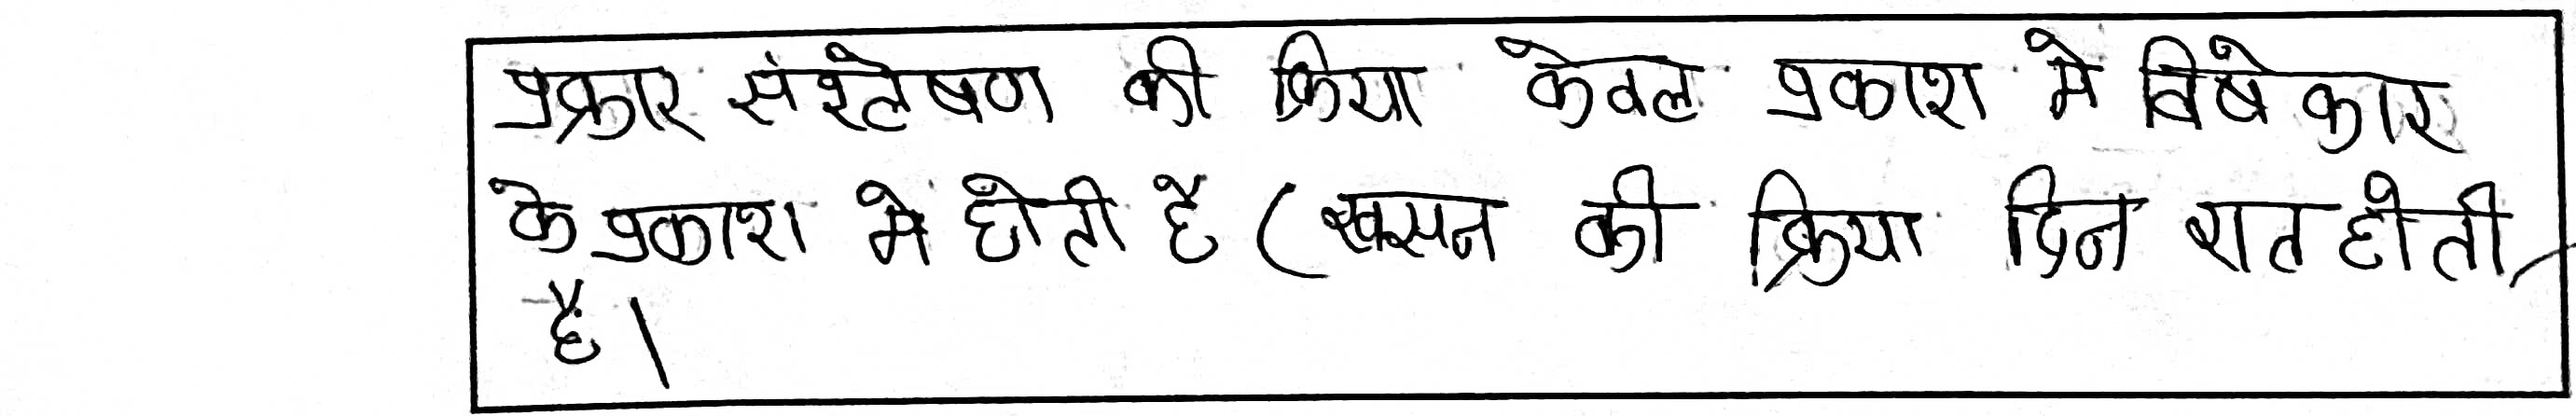 प्रकार संश्लेषण की क्रिया केवल प्रकाश मे विषे कार
के प्रकाश मे होती है (श्वसन की क्रिया दिन रात होती
है।